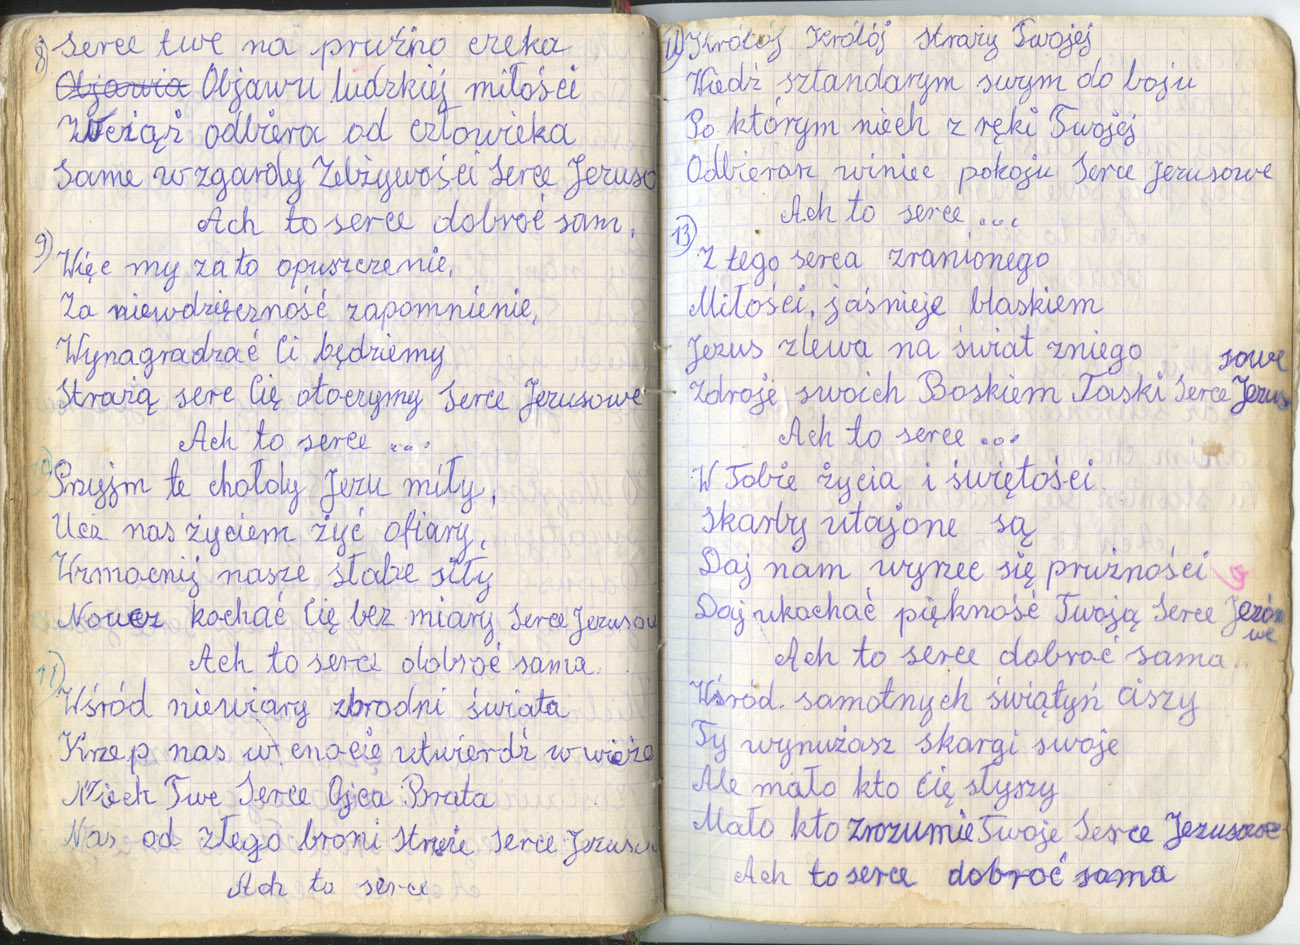 8) Serce twe na pruźno czeka
Objawia Objawu ludzkiej miłości
Wciąż odbiera od człowieka
Same wzgardy Zelżywości Serce Jezuso
Ach to serce dobroć sam,
9) Więc my za to opuszczenie,
Za niewdzięczność zapomnienie,
Wynagradzać Ci będziemy
Strażą serc Cię otoczymy Serce Jezusowe
Ach to serce ...
10) Przyjm te chołdy Jezu miły,
Ucz nas życiem żyć ofiary,
Wzmocnij nasze słabe siły
Naucz kochać Cię bez miary, Serce Jezusow
Ach to serce dobroć sama.
11) Wśród niewiary zbrodni świata
Krzep nas w cnocie utwierdź w wieże
Niech Twe Serce Ojca Brata
Nas od złego broni strzeże Serce Jezuso
Ach to serce
Królój Królój straży Twojej
Wiedź sztandarym swym do boju
Po którym niech z ręki Twojej
Odbieram winiec pokoju Serce Jezusowe
Ach to serce ...
13) Z tego serca zranionego
Miłości, jaśnieje blaskiem
Jezus zlewa na świat zniego
Zdroje swoich Boskiem Łaski Serce Jezusowe
Ach to serce ...
W Tobie życia i świętości.
Skarby utajone są
Daj nam wyrzec się pruźności
Daj ukochać piękność Twoją Serce Jezósowe
Ach to serce dobroć sama..
Wśród samotnych świątyń ciszy
Ty wynużasz skargi swoje
Ale mało kto Cię słyszy
Mało kto zrozumie Twoje Serce Jezusowe
Ach to serce dobroć sama